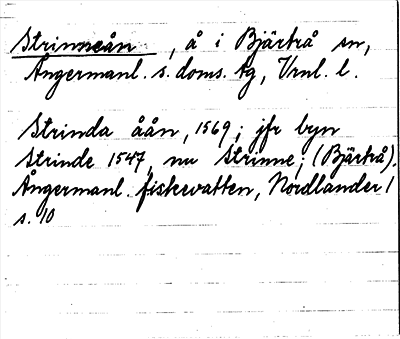 Strinneån, å i Bjärtrå sn,
Ångermanl. s. doms. tg, Vrnl. l.
Strinda åån, 1569; jfr byn
Strinde 1547, nu Strinne; (Bjärtrå).
Ångermanl. fiskevatten, Nordlander 1
s. 10